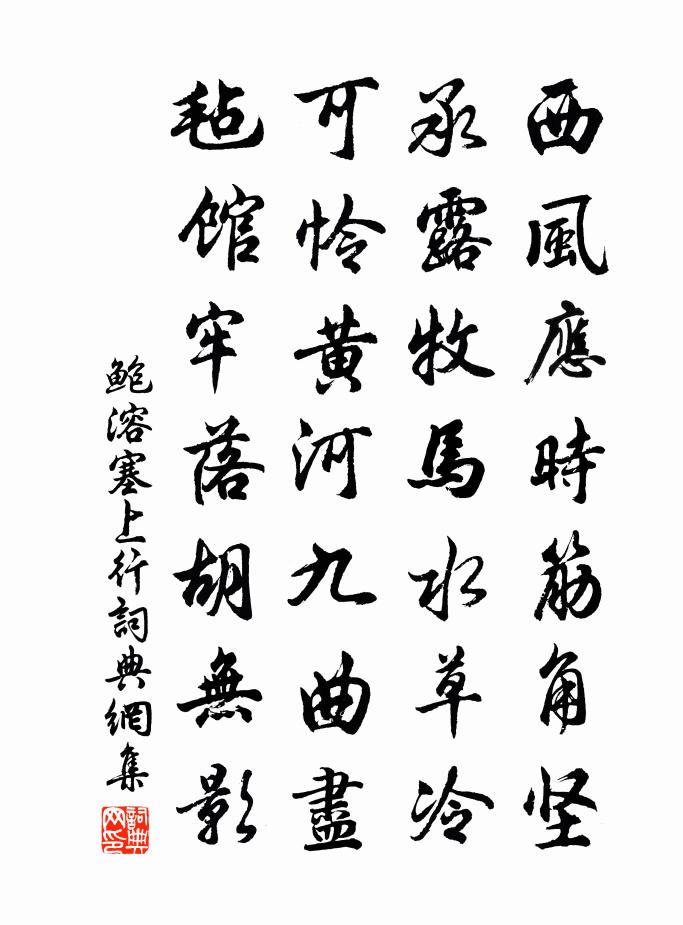 西風應時筋角坚
承露牧馬水草冷
可怜黄河九曲盡
毡馆牢落胡無影
鲍溶塞上行詞典網集
詞典网印